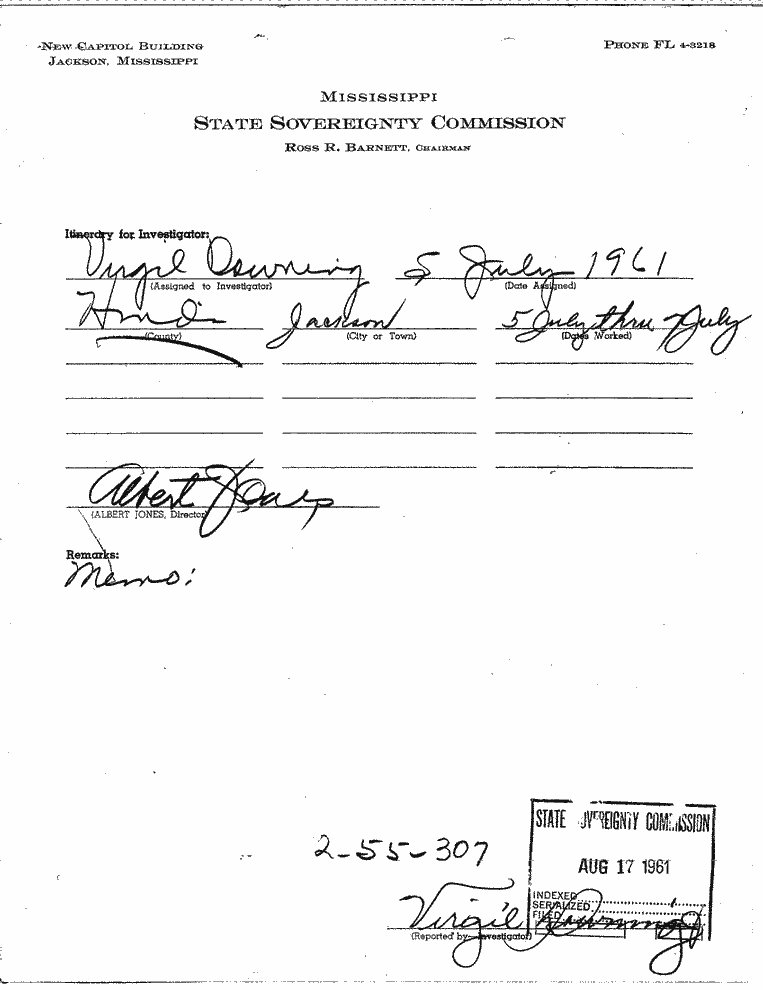 NEW CAPITOL BUILDING PHONE FL 4-3218
JACKSON, MISSISSIPPI
MISSISSIPPI
STATE SOVEREIGNTY COMMISSION
ROSS R. BARNETT, CHAIRMAN
Itinerary for Investigator:
Virgil Downing 5 July 1961
(Assigned to Investigator) (Date Assigned)
Hinds Jackson 5 July thru 7 July
(County) (City or Town) (Dates Worked)
Albert Jones
(ALBERT JONES, Director)
Remarks:
Memo:
STATE SOVEREIGNTY COMMISSION
2-55-307
AUG 17 1961
INDEXED
SERIALIZED
FILED
Virgil Downing
(Reported by—Investigator)